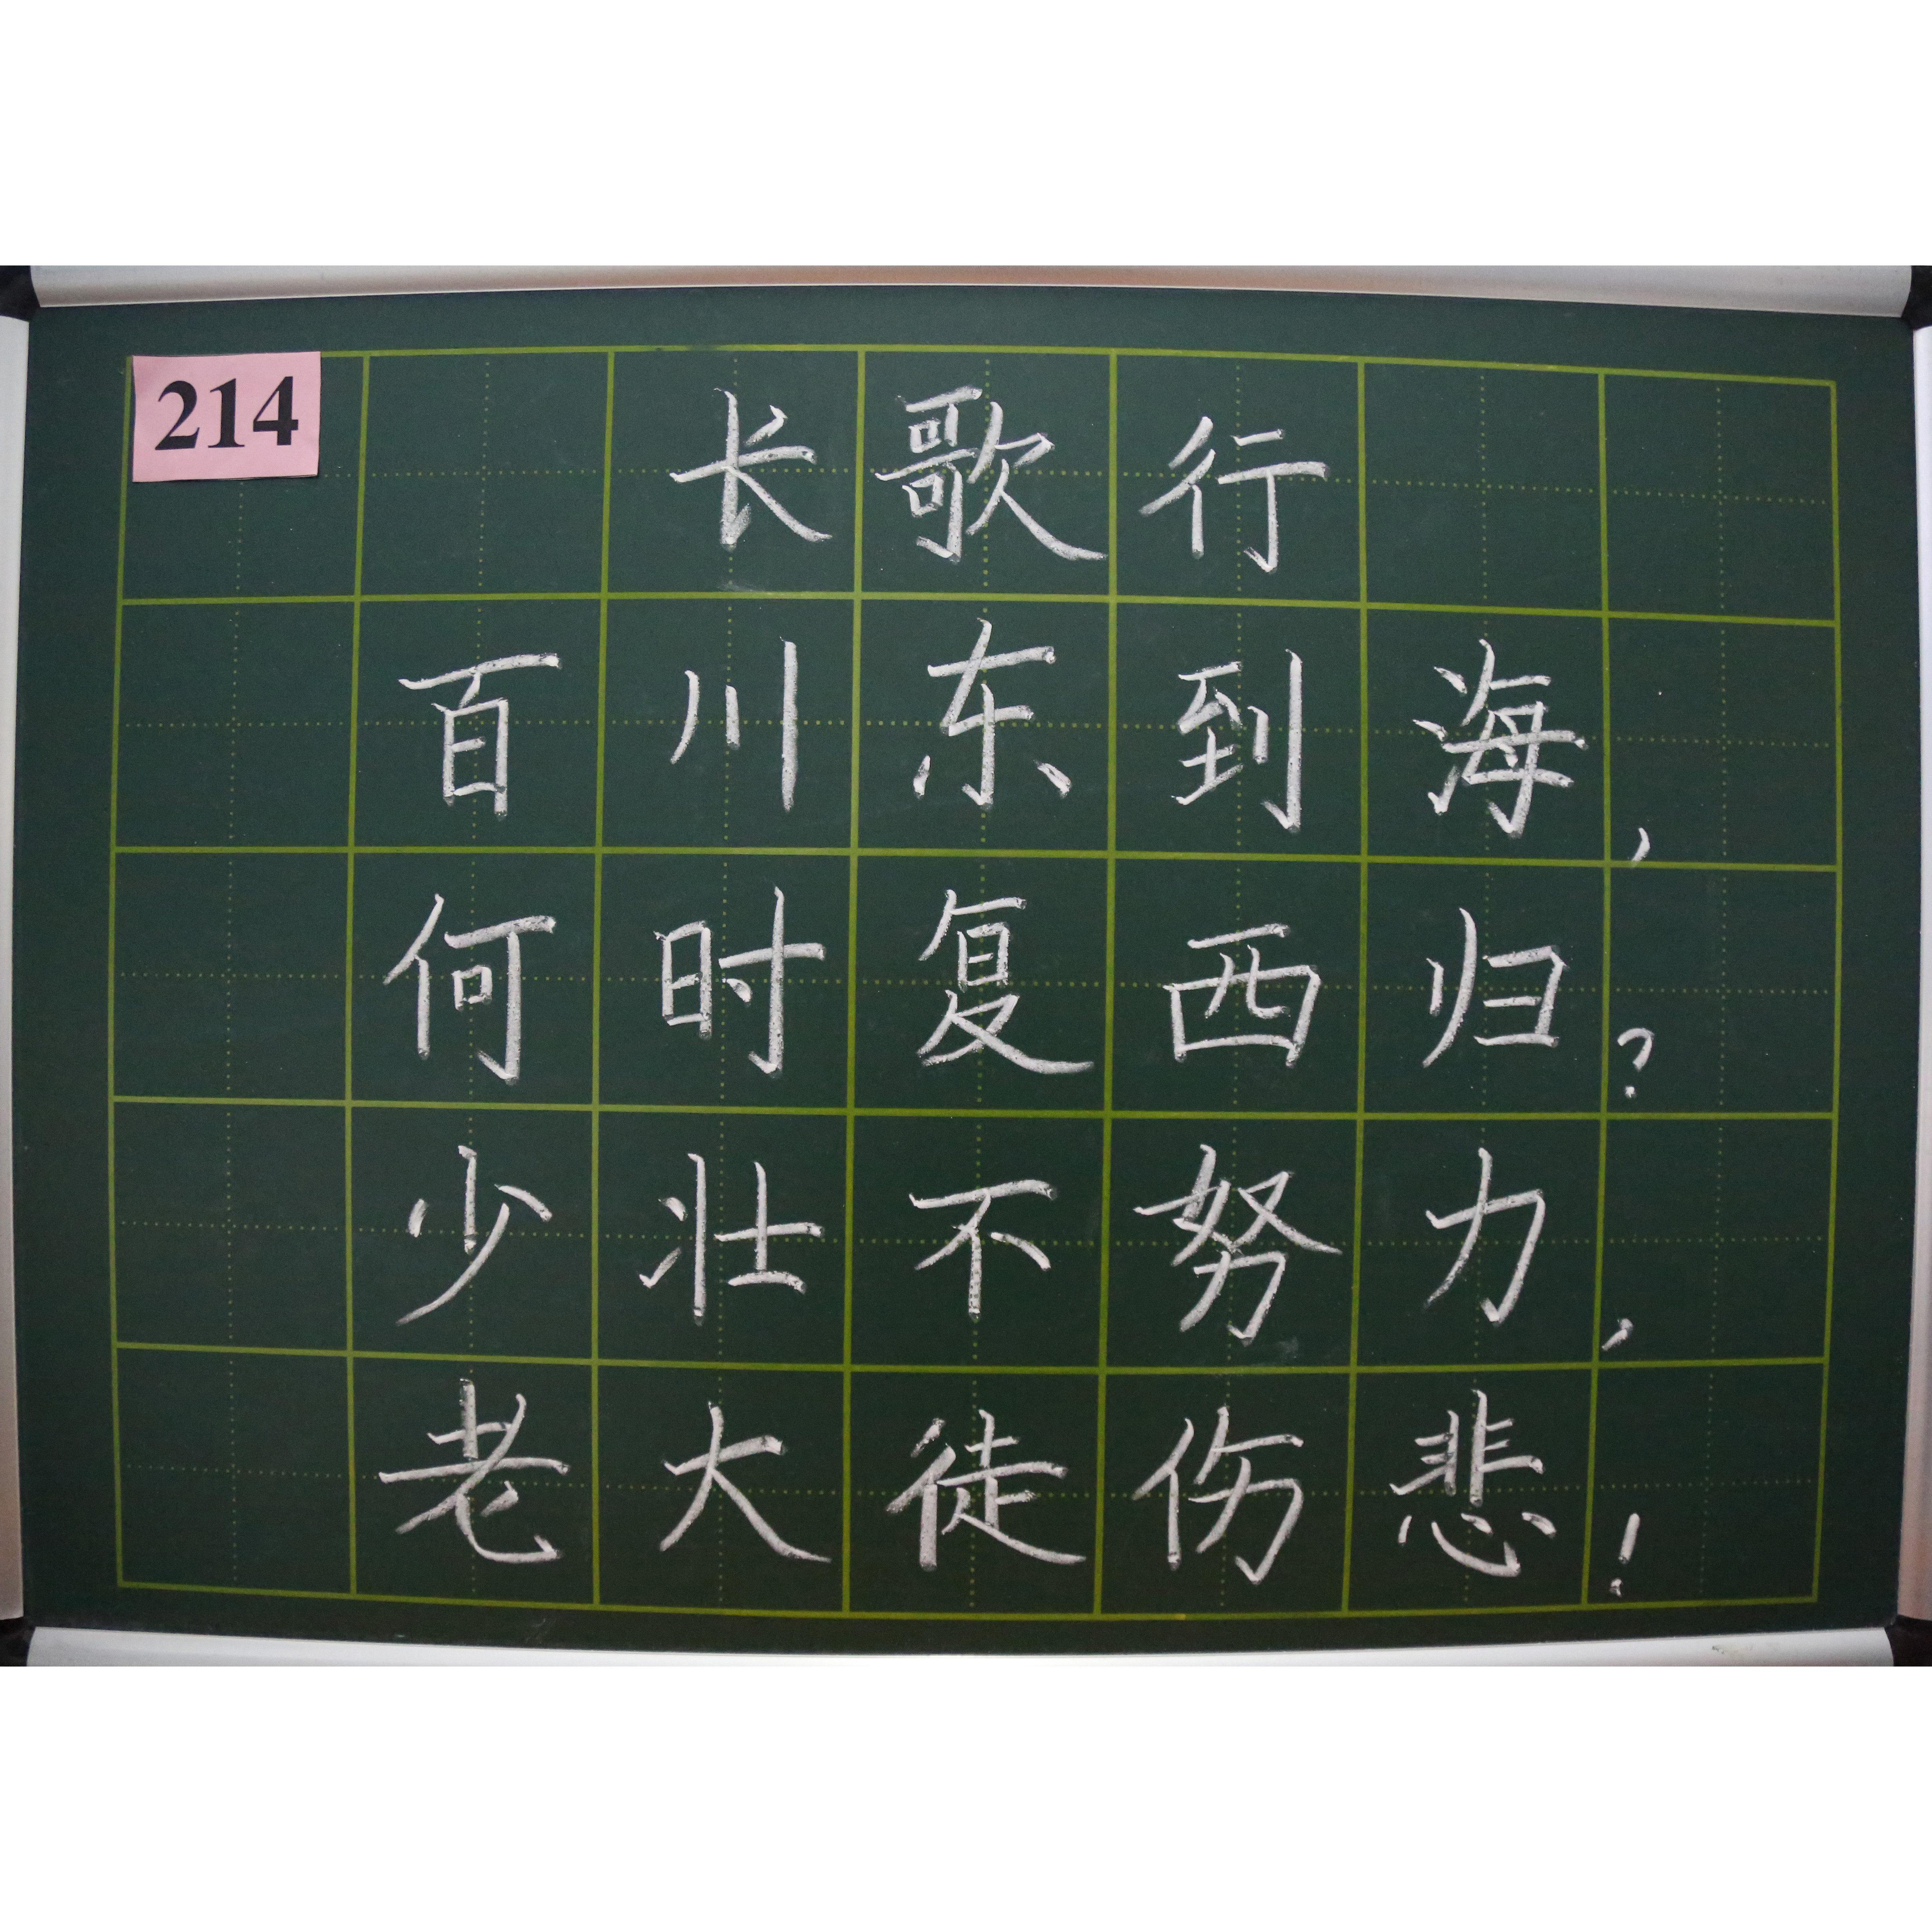 214
长歌行
百川东到海，
何时复西归？
少壮不努力，
老大徒伤悲！